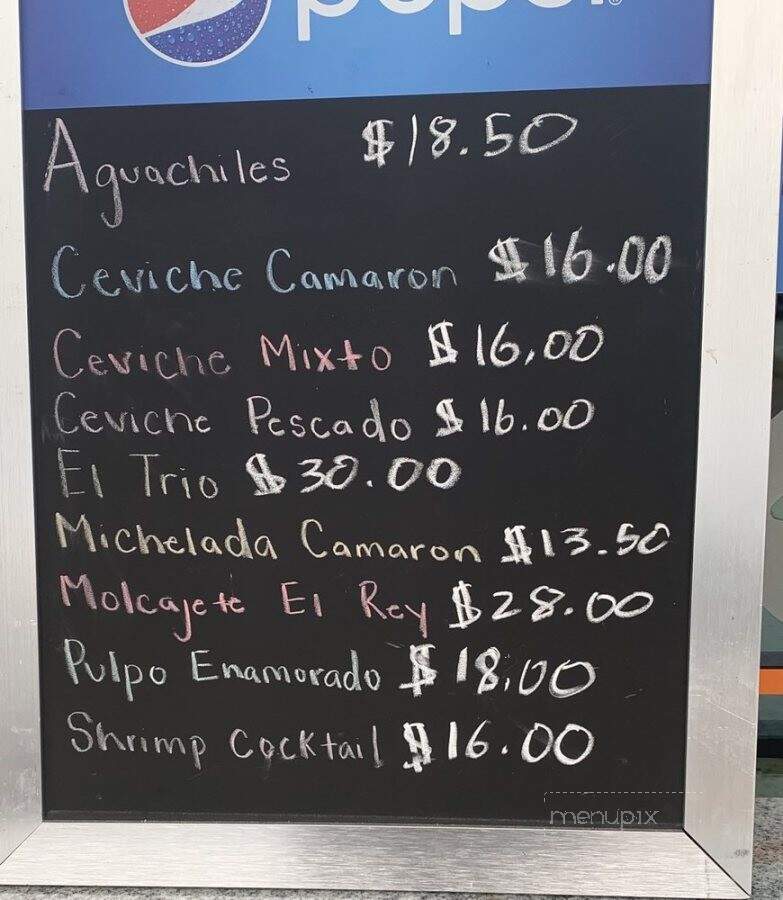 pepsi®
Aguachiles $18.50
Ceviche Camaron $16.00
Ceviche Mixto $16,00
Ceviche Pescado $16.00
El Trio $30.00
Michelada Camaron $13.50
Molcajete El Rey $28.00
Pulpo Enamorado $18,00
Shrimp Cocktail $16.00
menupix